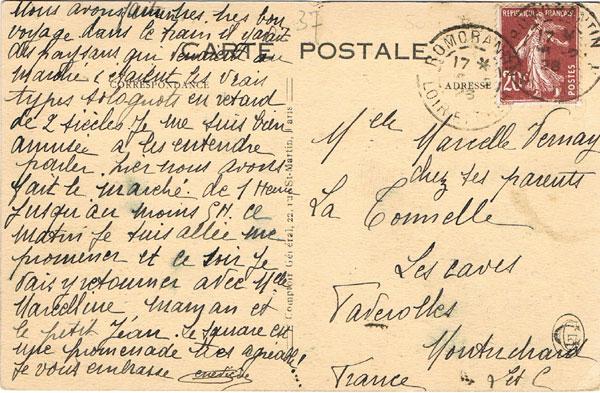 Nous avons fait un très bon
voyage dans le train il y avait
des paysans qui venaient au
marché c'étaient les vrais
types solognots en retard
de 2 siècles Je me suis bien
amusée à les entendre
parler. hier nous avons
fait le marché de 1 Heure
jusqu'au moins 5H. ce
matin je suis allée me
promener et ce soir je
vais y retourner avec Mlle
Marcelline, maman et
le petit Jean. Le square est
une promenade très agréable
Je vous embrasse
37
CARTE POSTALE
CORRESPONDANCE
ADRESSE
Comptoir Général, 22, rue St-Martin, Paris
ROMORANTIN
LOIR-ET-CHER
17 *
REPUBLIQUE FRANÇAISE
20c
POSTES
Melle Marcelle Vernay
chez ses parents
La Tonnelle
Les caves
Faverolles
Montrichard
France L et C